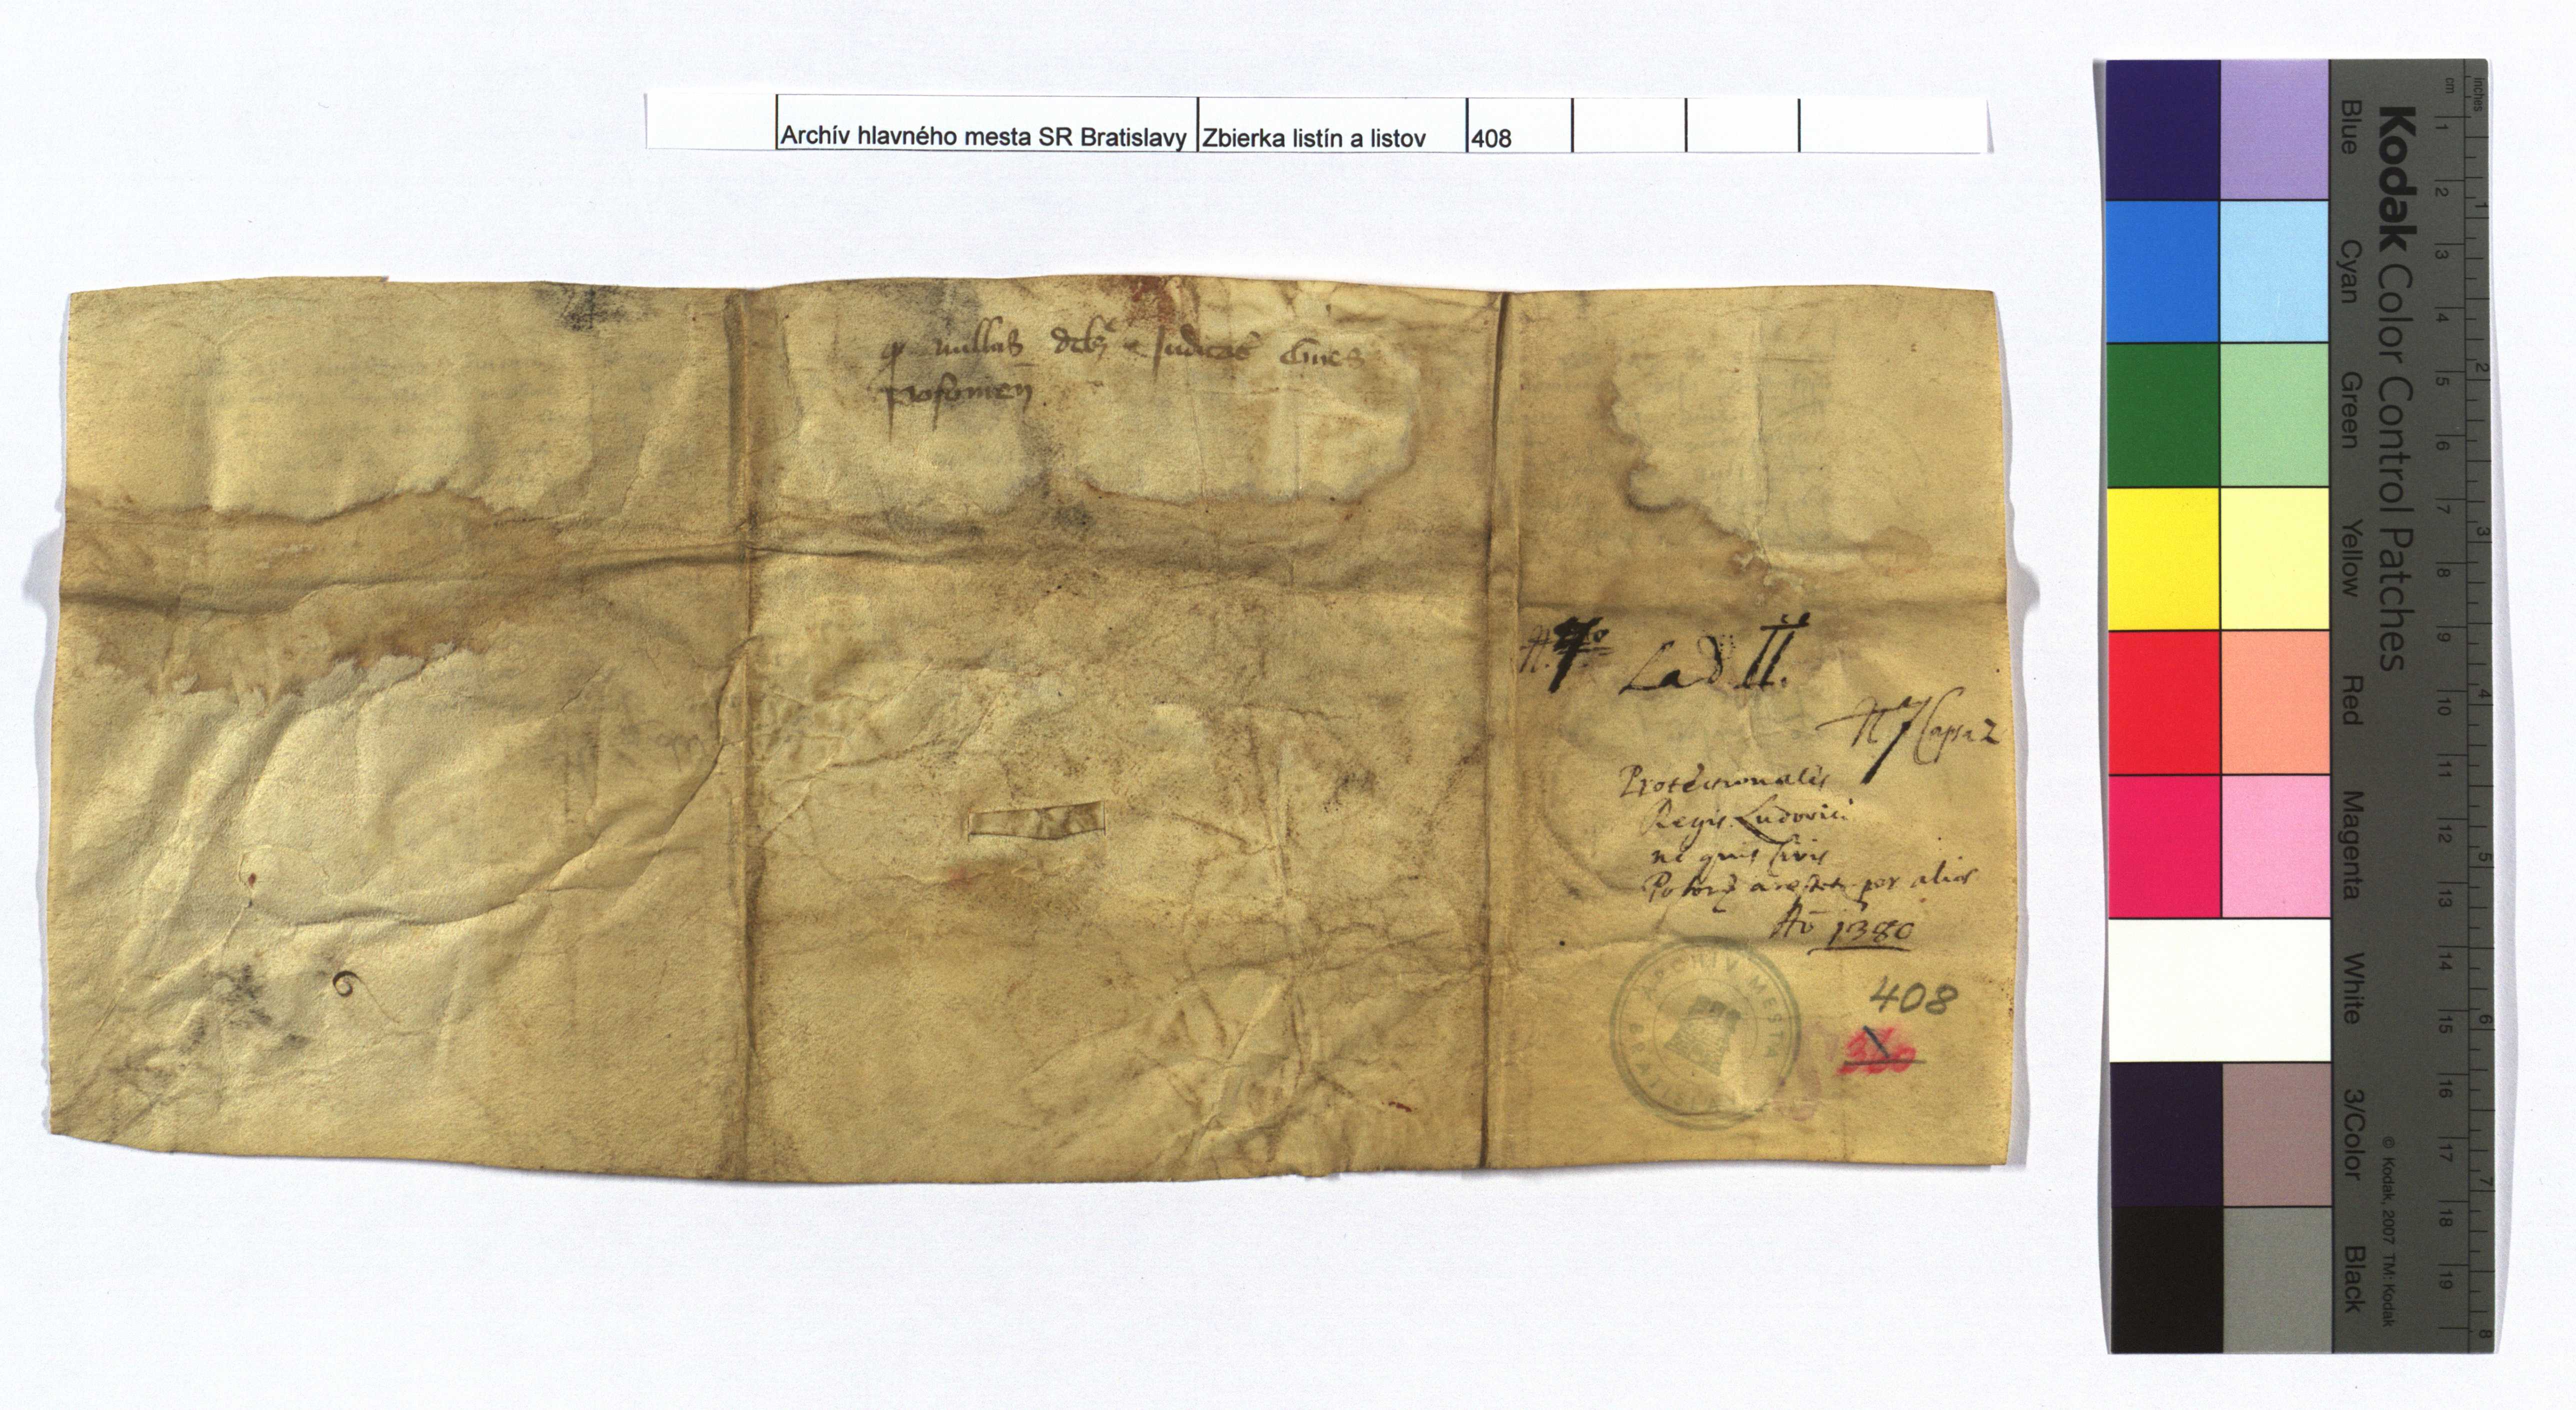 Archív hlavného mesta SR Bratislavy Zbierka listín a listov 408
nullus Judicare Cives
posonien
Lad II.
N 7 Capsa 2
Protectionalis
Regis Ludovici
ne quis Civis
per alios
Aō 1380
408
ARCHÍV MESTA BRATISLAVY
Kodak Color Control Patches
Blue Cyan Green Yellow Red Magenta White 3/Color Black
© Kodak, 2007 TM: Kodak
cm 1 2 3 4 5 6 7 8 9 10 11 12 13 14 15 16 17 18 19
inches 1 2 3 4 5 6 7 8